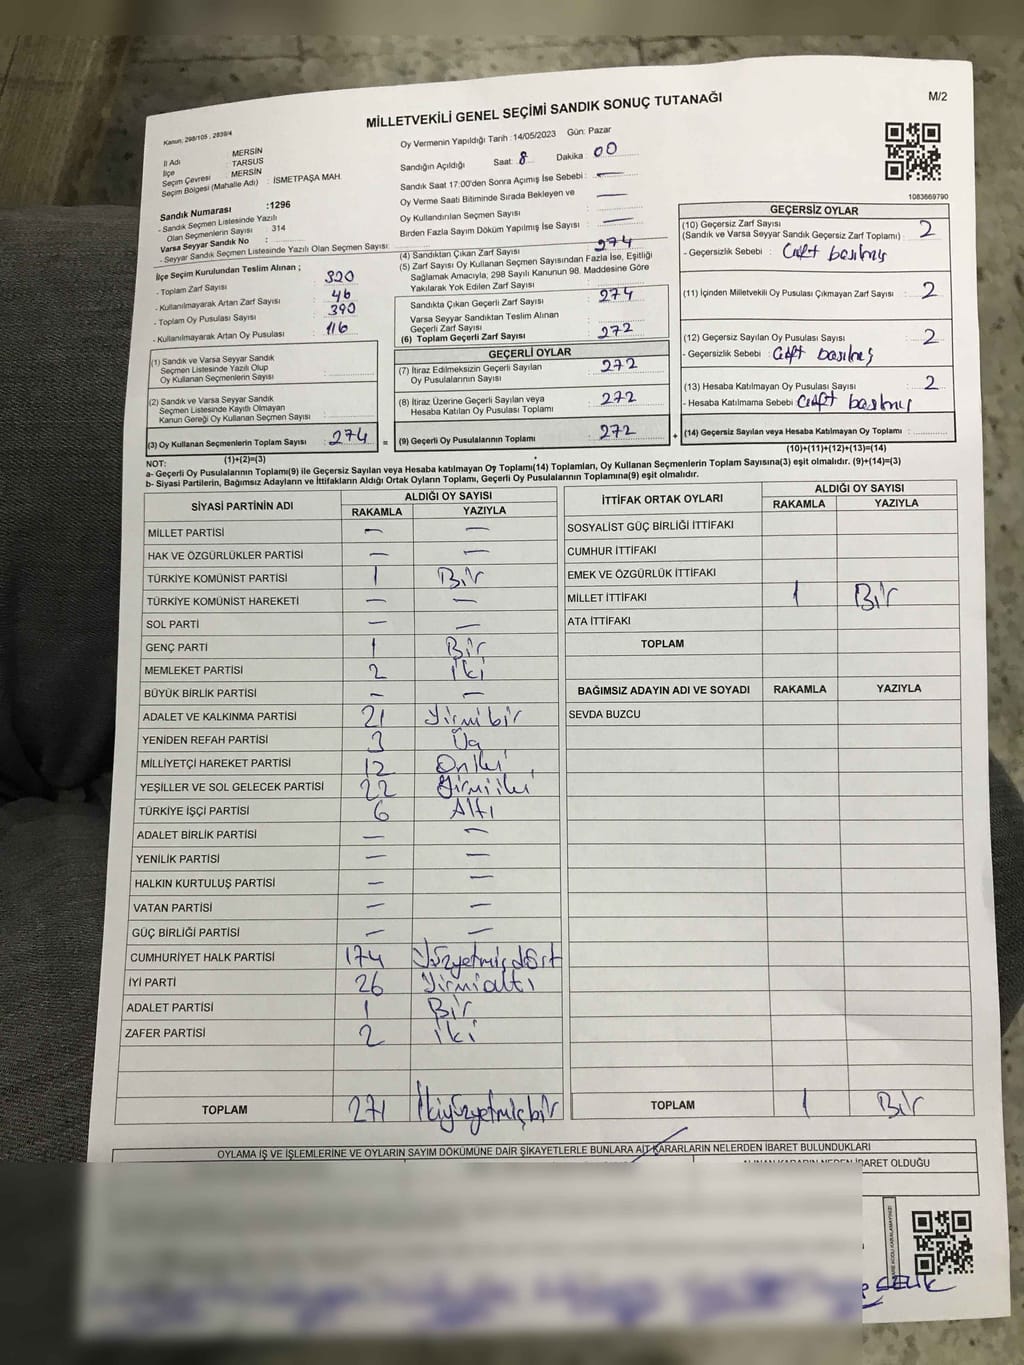 MİLLETVEKİLİ GENEL SEÇİMİ SANDIK SONUÇ TUTANAĞI
M/2
Kanun: 298/105 , 2839/4
İl Adı : MERSİN
İlçe : TARSUS
Seçim Çevresi : MERSİN
Seçim Bölgesi (Mahalle Adı) : İSMETPAŞA MAH.
Oy Vermenin Yapıldığı Tarih :14/05/2023 Gün: Pazar
Sandığın Açıldığı Saat: 8 Dakika : 00
Sandık Saat 17:00'den Sonra Açımış İse Sebebi : —
Oy Verme Saati Bitiminde Sırada Bekleyen ve
Oy Kullandırılan Seçmen Sayısı —
Birden Fazla Sayım Döküm Yapılmış İse Sayısı : —
1083669790
Sandık Numarası :1296
- Sandık Seçmen Listesinde Yazılı
Olan Seçmenlerin Sayısı : 314
Varsa Seyyar Sandık No :
- Seyyar Sandık Seçmen Listesinde Yazılı Olan Seçmen Sayısı:
İlçe Seçim Kurulundan Teslim Alınan ;
- Toplam Zarf Sayısı : 320
- Kullanılmayarak Artan Zarf Sayısı : 46
- Toplam Oy Pusulası Sayısı : 390
- Kullanılmayarak Artan Oy Pusulası : 116
(1) Sandık ve Varsa Seyyar Sandık
Seçmen Listesinde Yazılı Olup
Oy Kullanan Seçmenlerin Sayısı :
(2) Sandık ve Varsa Seyyar Sandık
Seçmen Listesinde Kayıtlı Olmayan
Kanun Gereği Oy Kullanan Seçmen Sayısı :
(3) Oy Kullanan Seçmenlerin Toplam Sayısı : 274 =
(1)+(2)=(3)
(4) Sandıktan Çıkan Zarf Sayısı : 274
(5) Zarf Sayısı Oy Kullanan Seçmen Sayısından Fazla İse, Eşitliği
Sağlamak Amacıyla; 298 Sayılı Kanunun 98. Maddesine Göre
Yakılarak Yok Edilen Zarf Sayısı :
Sandıkta Çıkan Geçerli Zarf Sayısı : 274
Varsa Seyyar Sandıktan Teslim Alınan
Geçerli Zarf Sayısı :
(6) Toplam Geçerli Zarf Sayısı : 272
GEÇERLİ OYLAR
(7) İtiraz Edilmeksizin Geçerli Sayılan
Oy Pusulalarının Sayısı : 272
(8) İtiraz Üzerine Geçerli Sayılan veya
Hesaba Katılan Oy Pusulası Toplamı : 272
(9) Geçerli Oy Pusulalarının Toplamı : 272 +
GEÇERSİZ OYLAR
(10) Geçersiz Zarf Sayısı
(Sandık ve Varsa Seyyar Sandık Geçersiz Zarf Toplamı) : 2
- Geçersizlik Sebebi : Çift basılmış
(11) İçinden Milletvekili Oy Pusulası Çıkmayan Zarf Sayısı : 2
(12) Geçersiz Sayılan Oy Pusulası Sayısı : 2
- Geçersizlik Sebebi : Çift basılmış
(13) Hesaba Katılmayan Oy Pusulası Sayısı : 2
- Hesaba Katılmama Sebebi : Çift basılmış
(14) Geçersiz Sayılan veya Hesaba Katılmayan Oy Toplamı :
(10)+(11)+(12)+(13)=(14)
NOT:
a- Geçerli Oy Pusulalarının Toplamı(9) ile Geçersiz Sayılan veya Hesaba katılmayan Oy Toplamı(14) Toplamları, Oy Kullanan Seçmenlerin Toplam Sayısına(3) eşit olmalıdır. (9)+(14)=(3)
b- Siyasi Partilerin, Bağımsız Adayların ve İttifakların Aldığı Ortak Oyların Toplamı, Geçerli Oy Pusulalarının Toplamına(9) eşit olmalıdır.
SİYASİ PARTİNİN ADI ALDIĞI OY SAYISI
RAKAMLA YAZIYLA
MİLLET PARTİSİ — —
HAK VE ÖZGÜRLÜKLER PARTİSİ — —
TÜRKİYE KOMÜNİST PARTİSİ 1 Bir
TÜRKİYE KOMÜNİST HAREKETİ — —
SOL PARTİ — —
GENÇ PARTİ 1 Bir
MEMLEKET PARTİSİ 2 iki
BÜYÜK BİRLİK PARTİSİ — —
ADALET VE KALKINMA PARTİSİ 21 Yirmibir
YENİDEN REFAH PARTİSİ 3 Üç
MİLLİYETÇİ HAREKET PARTİSİ 12 Oniki
YEŞİLLER VE SOL GELECEK PARTİSİ 22 Yirmiiki
TÜRKİYE İŞÇİ PARTİSİ 6 Altı
ADALET BİRLİK PARTİSİ — —
YENİLİK PARTİSİ — —
HALKIN KURTULUŞ PARTİSİ — —
VATAN PARTİSİ — —
GÜÇ BİRLİĞİ PARTİSİ — —
CUMHURİYET HALK PARTİSİ 174 Yüzyetmişdört
İYİ PARTİ 26 Yirmialtı
ADALET PARTİSİ 1 Bir
ZAFER PARTİSİ 2 iki
TOPLAM 271 İkiyüzyetmişbir
İTTİFAK ORTAK OYLARI ALDIĞI OY SAYISI
RAKAMLA YAZIYLA
SOSYALİST GÜÇ BİRLİĞİ İTTİFAKI
CUMHUR İTTİFAKI
EMEK VE ÖZGÜRLÜK İTTİFAKI
MİLLET İTTİFAKI 1 Bir
ATA İTTİFAKI
TOPLAM
BAĞIMSIZ ADAYIN ADI VE SOYADI RAKAMLA YAZIYLA
SEVDA BUZCU
TOPLAM 1 Bir
OYLAMA İŞ VE İŞLEMLERİNE VE OYLARIN SAYIM DÖKÜMÜNE DAİR ŞİKAYETLERLE BUNLARA AİT KARARLARIN NELERDEN İBARET BULUNDUKLARI
İBARET OLDUĞU
ÇELİK